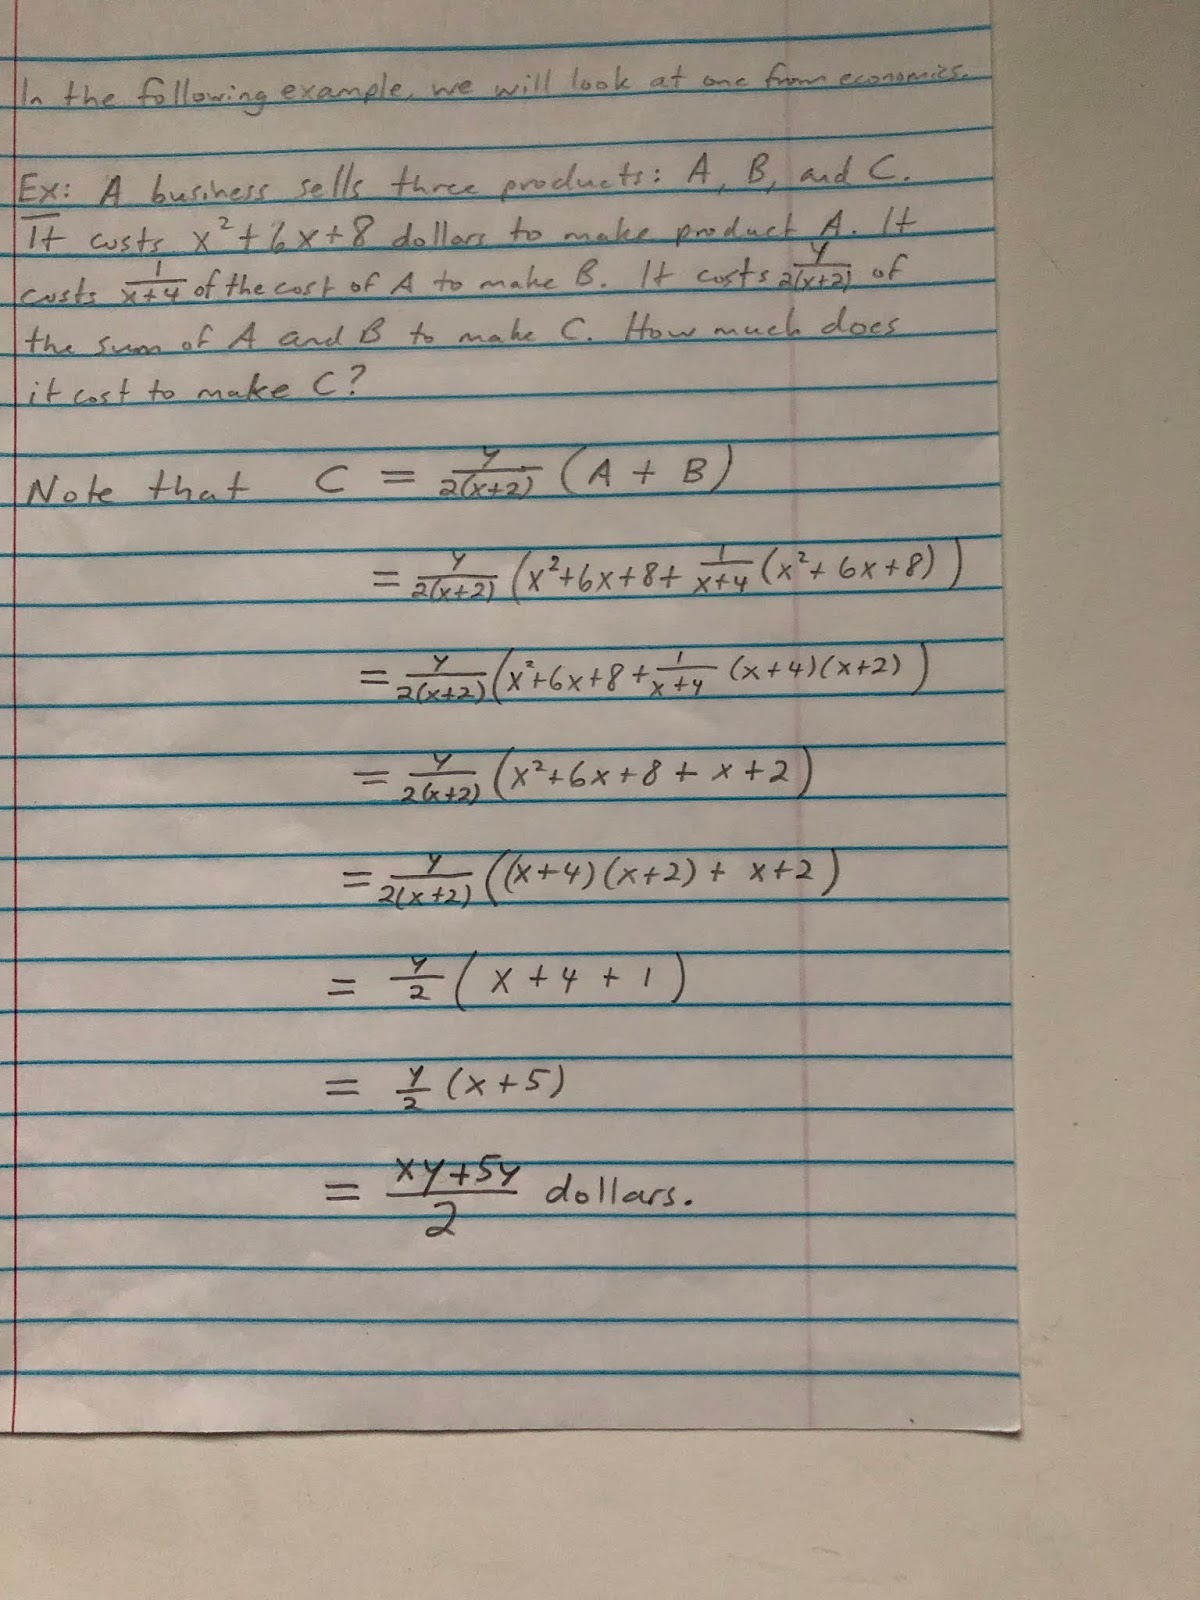 In the following example, we will look at one from economics.
Ex: A business sells three products: A, B, and C.
It costs x²+6x+8 dollars to make product A. It
costs 1/(x+4) of the cost of A to make B. It costs y/(2(x+2)) of
the sum of A and B to make C. How much does
it cost to make C?
Note that C = y/(2(x+2)) (A + B)
= y/(2(x+2)) (x²+6x+8+ 1/(x+4) (x²+6x+8))
= y/(2(x+2)) (x²+6x+8+ 1/(x+4) (x+4)(x+2))
= y/(2(x+2)) (x²+6x+8+x+2)
= y/(2(x+2)) ((x+4)(x+2)+ x+2)
= y/2 (x+4+1)
= y/2 (x+5)
= (xy+5y)/2 dollars.